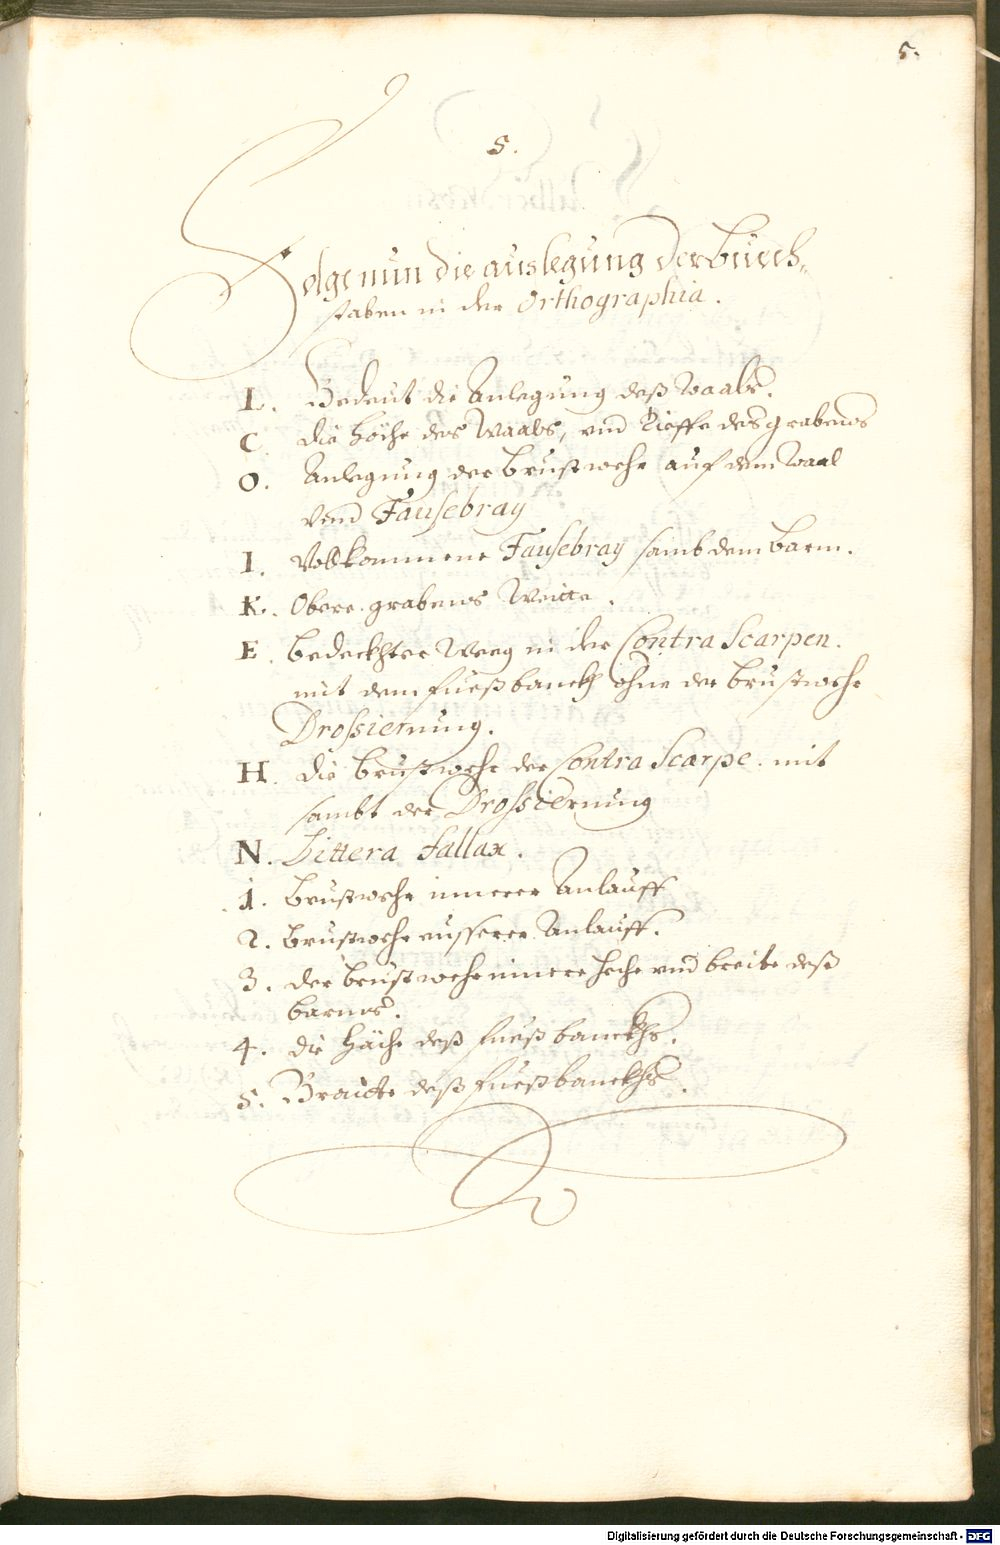 5.
5.
Folge nun die auslegung der buech-
staben in der Orthographia.
L. Bedeut die Anlegung deß Waals.
C die höche des Waals, vnd Tieffe des grabens
O. Anlegung der brustwehr auf dem Waal
vnnd Fausebray
I. Vollkommene Fausebray sambt dem barm.
K. Obere grabens Weitte.
E. bedeckhter Weeg in der Contra Scarpen.
mit dem fueßbanckh ohne der brustwehr
Drossiernung.
H. die brustwehr der Contra Scarpe. mit
sambt der Drossiernung
N. Littera fallax.
1. brustwehr innerer Anlauff
2. brustwehr eusserer Anlauff.
3. der brustwehr innere höche vnd breite deß
barms.
4. die häche deß fueßbanckhs.
5. Braitte deß fueßbanckhs.
Digitalisierung gefördert durch die Deutsche Forschungsgemeinschaft - DFG